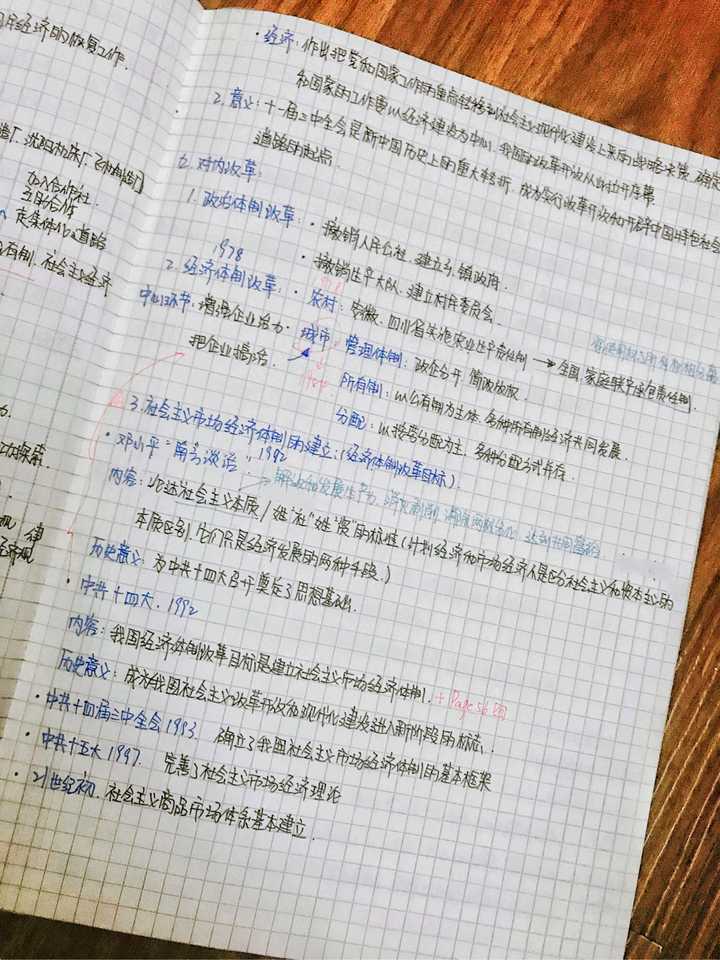 国民经济的恢复工作.
造厂、沈阳机床厂、飞机制造厂
加入合作社.
互助合作
走集体化道路
公有制、社会主义经济
工业探索.
·经济:作出把党和国家工作的重点转移到社会主义现代化建设上来的战略决策,确定
和国家的工作要以经济建设为中心,我国的改革开放从此拉开序幕
2.意义:十一届三中全会是新中国历史上的重大转折,成为实行改革开放和开辟中国特色社会
道路的起点.
七.对内改革:
1.政治体制改革:·撤销人民公社,建立乡、镇政府.
·撤销生产大队,建立村民委员会.
1978
2.经济体制改革:·农村:安徽、四川省实施农业生产责任制→全国,家庭联产承包责任制.
中心环节:增强企业活力· 城市:管理体制:政企分开,简政放权.
把企业搞活. 1984 所有制:以公有制为主体,多种所有制经济共同发展.
分配:以按劳分配为主,多种分配方式并存.
3.社会主义市场经济体制的建立:(经济体制改革目标)
·邓小平"南方谈话",1992
解放和发展生产力,消灭剥削,消除两极分化,达到共同富裕
内容:论述社会主义本质/姓"社"姓"资"的标准(计划经济和市场经济不是区分社会主义和资本主义的
本质区别.它们只是经济发展的两种手段.)
历史意义:为中共十四大召开奠定了思想基础.
·中共十四大.1992
内容:我国经济体制改革目标是建立社会主义市场经济体制.+Page56图
历史意义:成为我国社会主义改革开放和现代化建设进入新阶段的标志.
·中共十四届三中全会1993 确立了我国社会主义市场经济体制的基本框架
·中共十五大1997. 完善了社会主义市场经济理论
·21世纪初.社会主义商品市场体系基本建立.